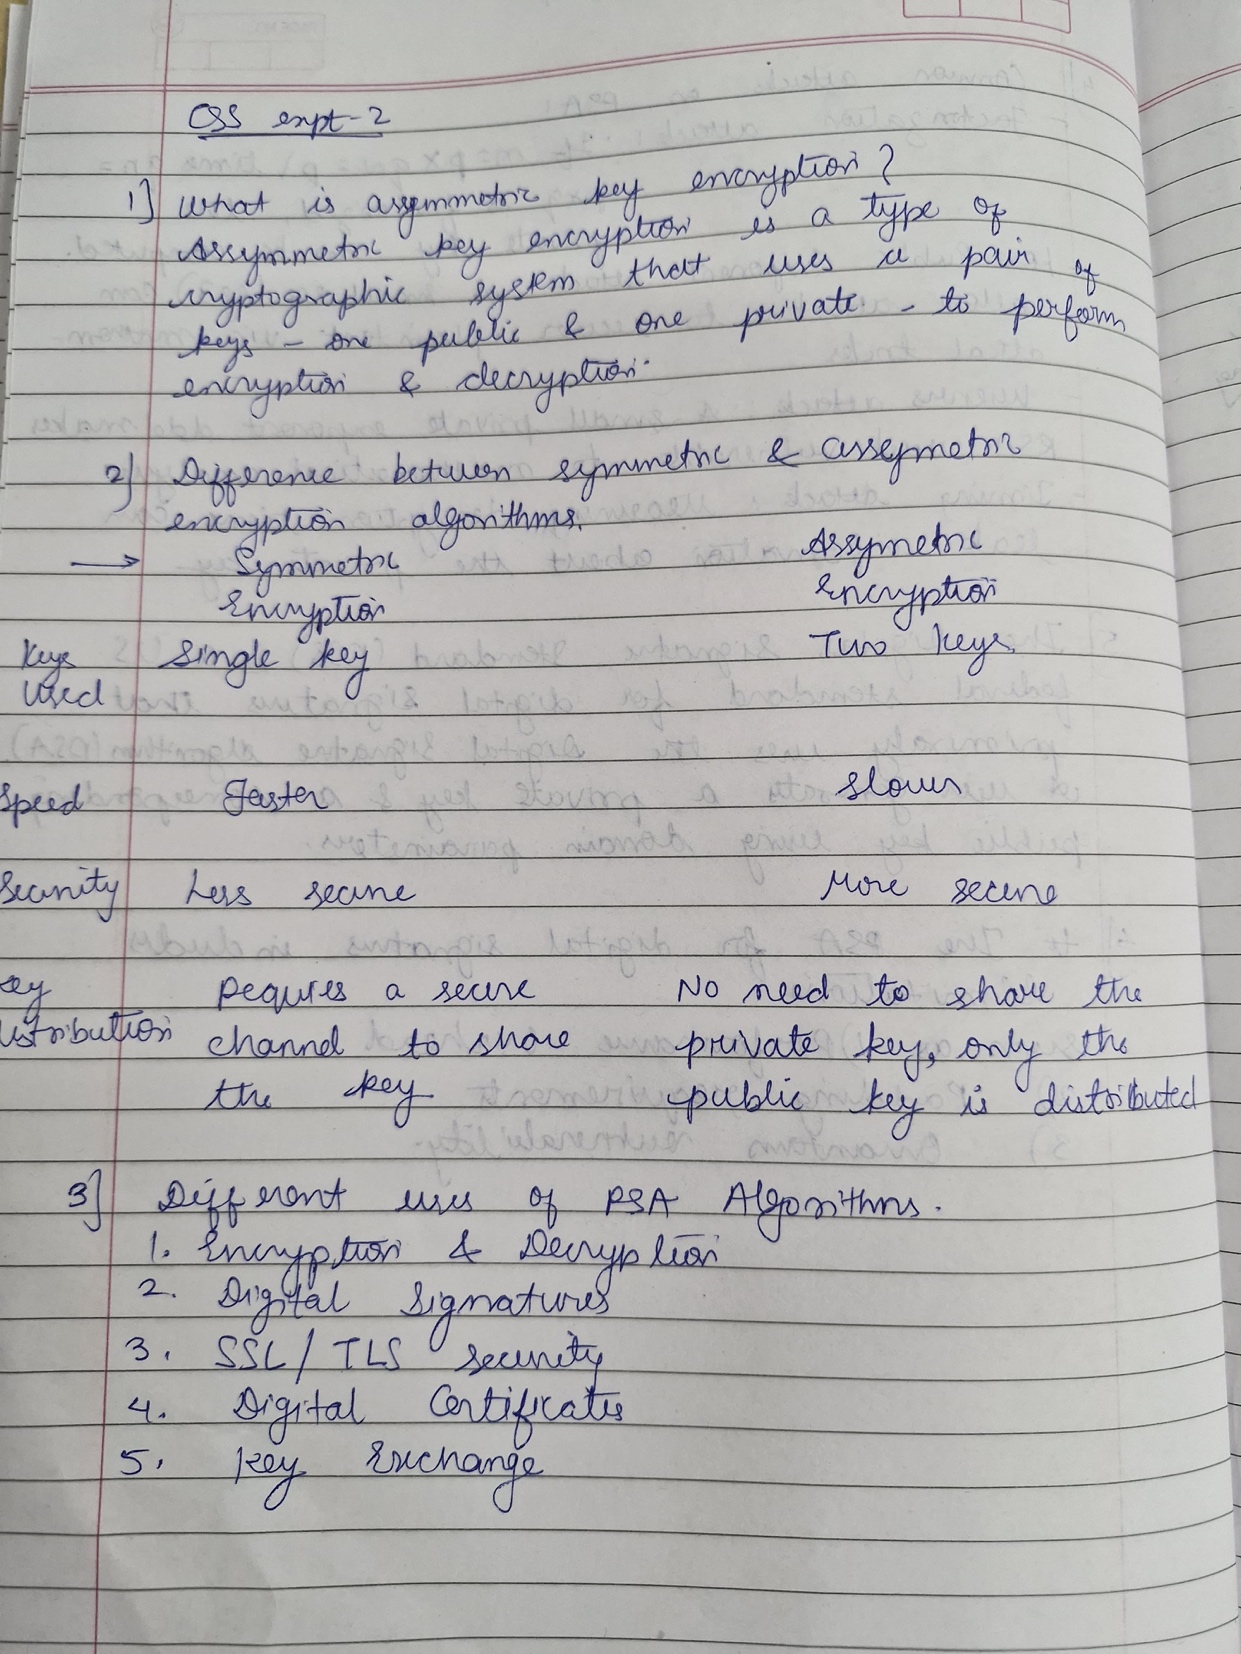 CSS expt-2
1] What is assymmetric key encryption?
Assymmetric key encryption is a type of
cryptographic system that uses a pair of
keys - one public & one private - to perform
encryption & decryption.
2) Difference between symmetric & assymetric
encryption algorithms.
→ Symmetric Assymetric
Encryption Encryption
Keys Single key Two keys
used
Speed Faster Slower
Security Less secure More secure
key Requires a secure No need to share the
distribution channel to share private key, only the
the key public key is distributed
3] Different uses of RSA Algorithms.
1. Encryption & Decryption
2. Digital Signatures
3. SSL/TLS security
4. Digital Certificates
5. Key Exchange